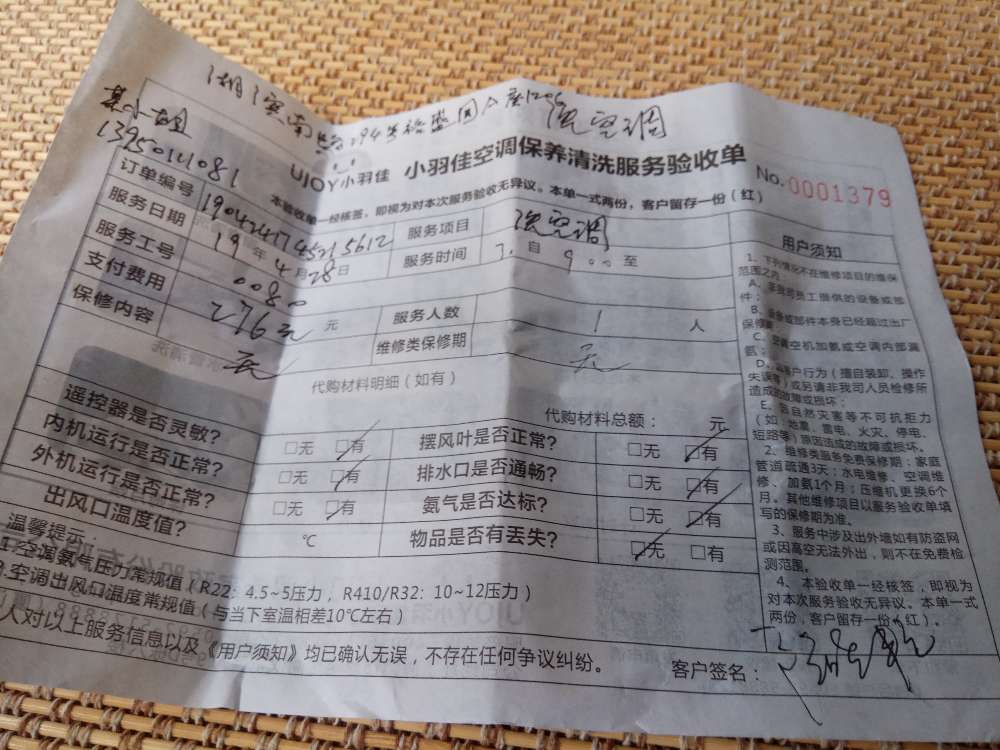 湖滨南路294号裕盛阁A座1206 洗空调
某小姐
13950111081
UJOY小羽佳 小羽佳空调保养清洗服务验收单
No.0001379
本验收单一经核签,即视为对本次服务验收无异议。本单一式两份,客户留存一份(红)
订单编号 服务项目 洗空调
服务日期 19年4月28日 服务时间 自 9:00 至
服务工号 0080 服务人数 1 人
支付费用 276元 元 维修类保修期 无
保修内容 无
代购材料明细(如有)
代购材料总额: 元
遥控器是否灵敏? □无 □有 摆风叶是否正常? □无 □有
内机运行是否正常? □无 □有 排水口是否通畅? □无 □有
外机运行是否正常? □无 □有 氨气是否达标? □无 □有
出风口温度值? ℃ 物品是否有丢失? □无 □有
温馨提示:
1.空调氨气压力常规值(R22:4.5~5压力,R410/R32:10~12压力)
空调出风口温度常规值(与当下室温相差10℃左右)
人对以上服务信息以及《用户须知》均已确认无误,不存在任何争议纠纷。
客户签名:
用户须知
1、下列情况不在维修项目的维保
范围之内:
A、非我司员工提供的设备或部
件;
B、设备或部件本身已经超过出厂
保修期;
C、空调空机加氨或空调内部漏
氨;
D、客户行为(擅自装卸、操作
失误等)或另请非我司人员检修所
造成的故障或损坏;
E、因自然灾害等不可抗拒力
(如:地震、雷电、火灾、停电、
短路等)原因造成的故障或损坏。
2、维修类服务免费保修期:家庭
管道疏通3天;水电维修、空调维
修、加氨1个月;压缩机更换6个
月。其他维修项目以服务验收单填
写的保修期为准。
3、服务中涉及出外墙如有防盗网
或因高空无法外出,则不在免费检
测范围。
4、本验收单一经核签,即视为
对本次服务验收无异议。本单一式
两份,客户留存一份(红)。